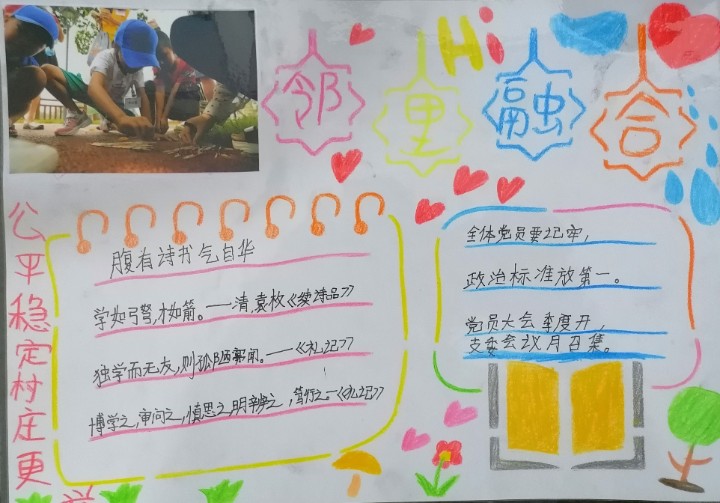 Hi
邻里融合
公平稳定村庄更
腹有诗书气自华
学如弓弩,才如箭。——清,袁枚《续诗品》
独学而无友,则孤陋寡闻。——《礼记》
博学之,审问之,慎思之,明辨之,笃行之。—《礼记》
全体党员要记牢,
政治标准放第一。
党员大会季度开,
支委会议月召集。